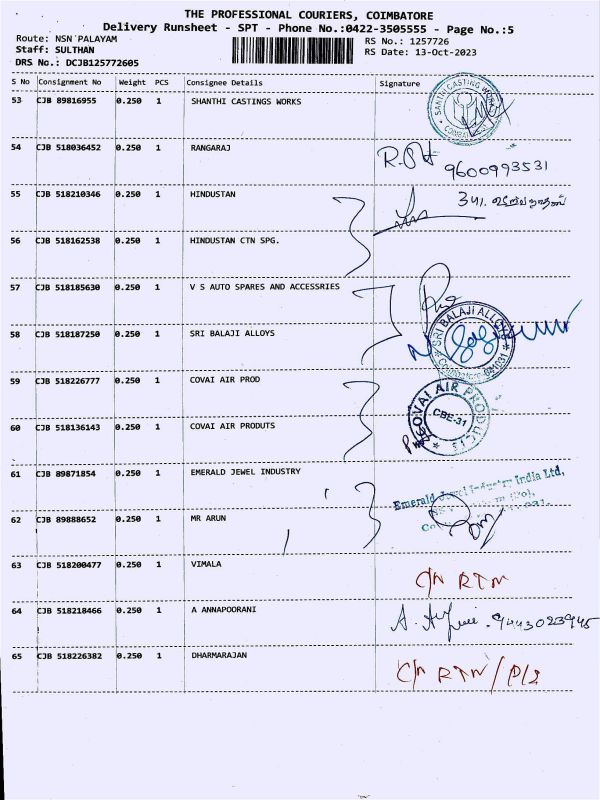 THE PROFESSIONAL COURIERS, COIMBATORE
Delivery Runsheet - SPT - Phone No.:0422-3505555 - Page No.:5
Route: NSN PALAYAM
RS No.: 1257726
Staff: SULTHAN
RS Date: 13-Oct-2023
DRS No.: DCJB125772605
S No Consignment No Weight PCS Consignee Details Signature
53 CJB 89816955 0.250 1 SHANTHI CASTINGS WORKS
54 CJB 518036452 0.250 1 RANGARAJ
9600993531
55 CJB 518210346 0.250 1 HINDUSTAN
56 CJB 518162538 0.250 1 HINDUSTAN CTN SPG.
57 CJB 518185630 0.250 1 V S AUTO SPARES AND ACCESSRIES
58 CJB 518187250 0.250 1 SRI BALAJI ALLOYS
SRI BALAJI ALLOYS
59 CJB 518226777 0.250 1 COVAI AIR PROD
COVAI AIR PRODUCTS
CBE-31
60 CJB 518136143 0.250 1 COVAI AIR PRODUTS
61 CJB 89871854 0.250 1 EMERALD JEWEL INDUSTRY
Emerald Jewel Industry India Ltd,
62 CJB 89888652 0.250 1 MR ARUN
63 CJB 518200477 0.250 1 VIMALA
C/n RTN
64 CJB 518218466 0.250 1 A ANNAPOORANI
9443023945
65 CJB 518226382 0.250 1 DHARMARAJAN
C/n RTN